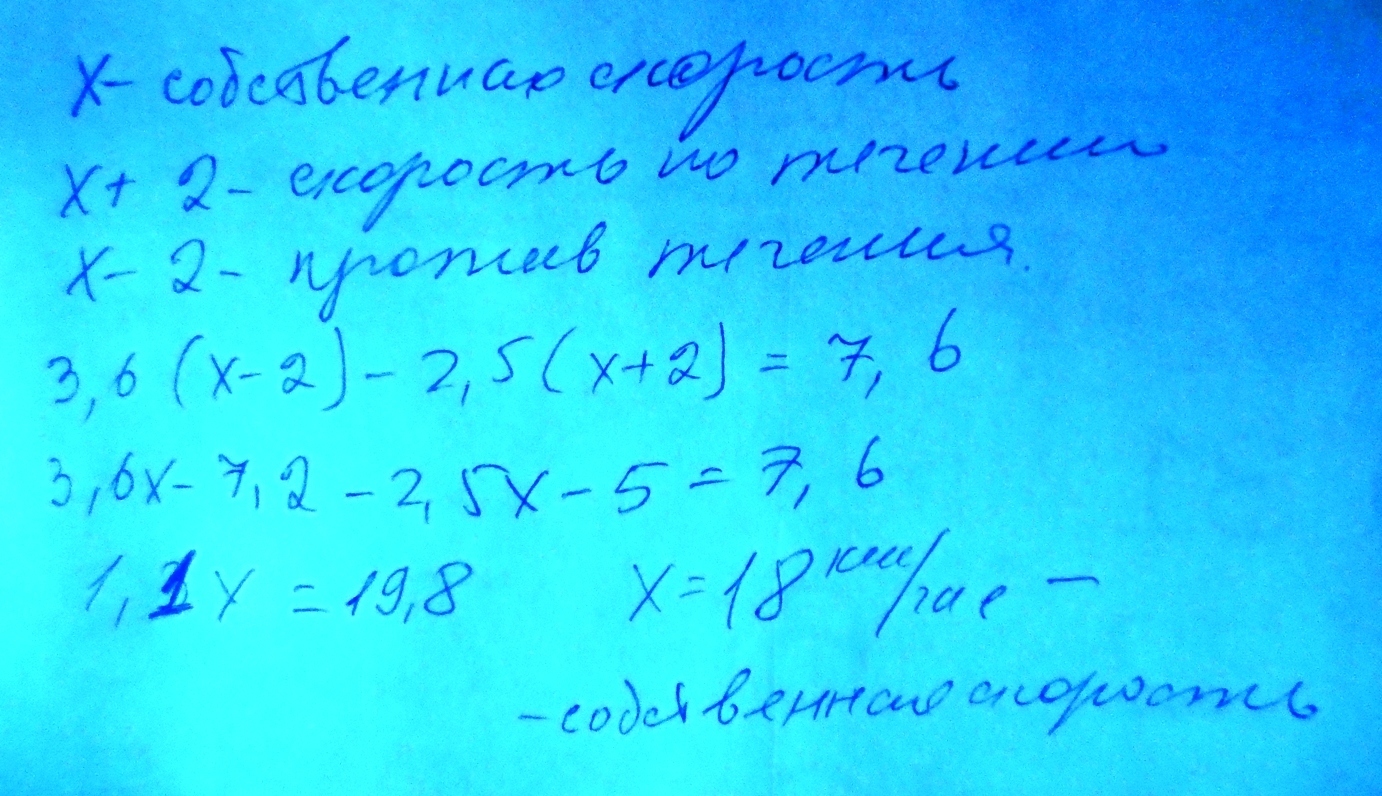 х - собственная скорость
х + 2 - скорость по течению
х - 2 - против течения.
3,6 (х - 2) - 2,5 (х + 2) = 7,6
3,6х - 7,2 - 2,5х - 5 = 7,6
1,1 х = 19,8 х = 18 км/час -
- собственная скорость